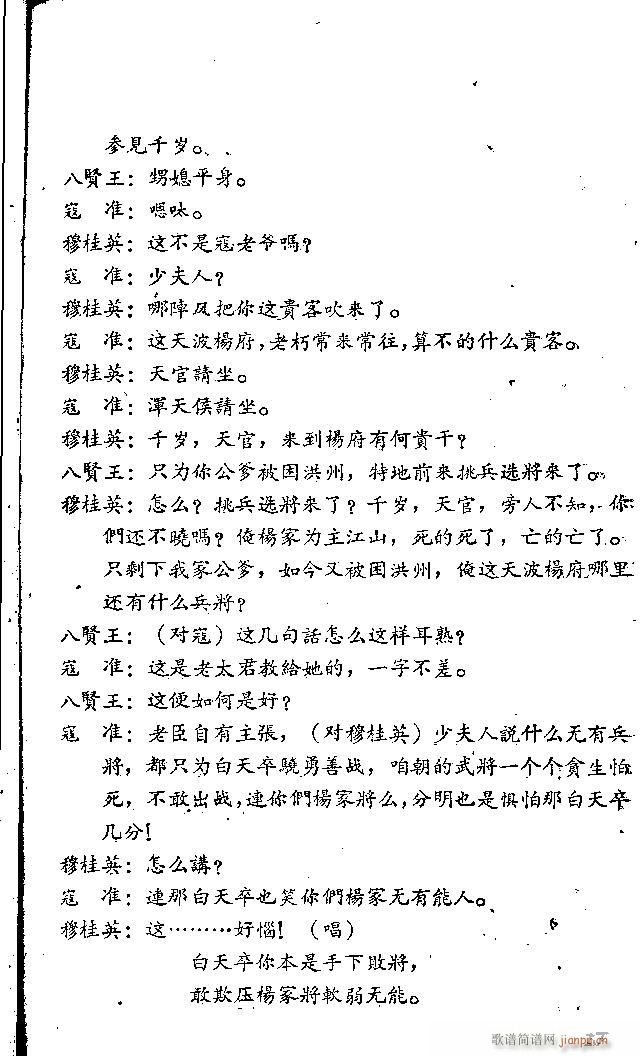 参見千岁。
八賢王：甥媳平身。
寇　准：嗯呔。
穆桂英：这不是寇老爷嗎？
寇　准：少夫人？
穆桂英：哪陣风把你这貴客吹来了。
寇　准：这天波楊府，老朽常来常往，算不的什么貴客。
穆桂英：天官請坐。
寇　准：渾天侯請坐。
穆桂英：千岁，天官，来到楊府有何貴干？
八賢王：只为你公爹被困洪州，特地前来挑兵选將来了。
穆桂英：怎么？挑兵选將来了？千岁，天官，旁人不知，你
們还不曉嗎？俺楊家为主江山，死的死了，亡的亡了。
只剩下我家公爹，如今又被困洪州，俺这天波楊府哪里
还有什么兵將？
八賢王：（对寇）这几句話怎么这样耳熟？
寇　准：这是老太君教給她的，一字不差。
八賢王：这便如何是好？
寇　准：老臣自有主張，（对穆桂英）少夫人説什么无有兵
將，都只为白天卒驍勇善战，咱朝的武將一个个貪生怕
死，不敢出战，連你們楊家將么，分明也是惧怕那白天卒
几分！
穆桂英：怎么講？
寇　准：連那白天卒也笑你們楊家无有能人。
穆桂英：这………好惱！（唱）
白天卒你本是手下敗將，
敢欺压楊家將軟弱无能。
歌谱简谱网
jianpu.cn